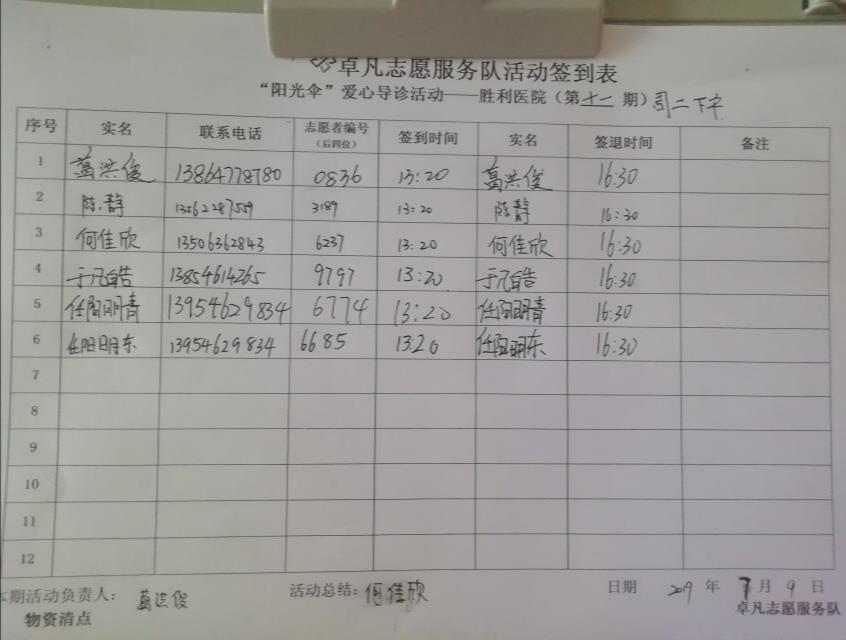 卓凡志愿服务队活动签到表
“阳光伞”爱心导诊活动——胜利医院（第十一 期）周二下午
序号 实名 联系电话 志愿者编号（后四位） 签到时间 实名 签退时间 备注
1 葛洪俊 13864778780 0836 13:20 葛洪俊 16:30
2 陈静 13562287559 3189 13:20 陈静 16:30
3 何佳欣 13506362843 6237 13:20 何佳欣 16:30
4 于凡皓 13854614265 9797 13:20 于凡皓 16:30
5 任阳明青 13954629834 6774 13:20 任阳明青 16:30
6 任阳明东 13954629834 6685 13:20 任阳明东 16:30
7
8
9
10
11
12
本期活动负责人： 葛洪俊 活动总结：何佳欣 日期 2019 年 7 月 9 日
物资清点 卓凡志愿服务队